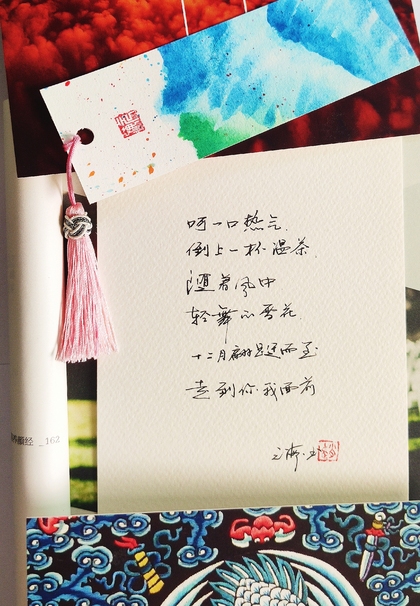 呵一口热气,
倒上一杯温茶,
随着风中
轻舞的雪花,
十二月翩跹而至
走到你我面前
经 _162